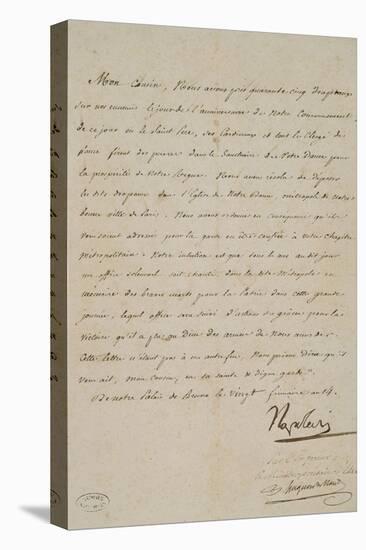 Mon Cousin, Nous avons pris quarante cinq Drapeaux
sur nos ennemis le jour de l'anniversaire de Notre Couronnement
de ce jour où le Saint Père, ses Cardinaux et tout le Clergé de
france firent des prières dans le Sanctuaire de Notre Dame pour
la prospérité de Notre Règne. Nous avons résolu de déposer
les dits drapeaux dans l'Eglise de Notre Dame, métropole de notre
bonne ville de Paris. Nous avons ordonné en conséquence qu'ils
vous soient adressés pour la garde en être confiée à votre chapitre
métropolitain. Notre intention est que tous les ans au dit jour
un office solemnel soit chanté dans la dite Métropole en
mémoire des braves morts pour la Patrie dans cette grande
journée, lequel office sera suivi d'actions de grâces pour la
victoire qu'il a plu au Dieu des armées de Nous
Cette lettre n'étant pas à une autre fin, Nous prions Dieu qu'il
vous ait, mon cousin, en sa sainte & digne garde
De notre Palais de Brunn le vingt frimaire an 14.
Napoleon
Par l'Empereur
Le Ministre Secrétaire d'état
Hugues B. Maret